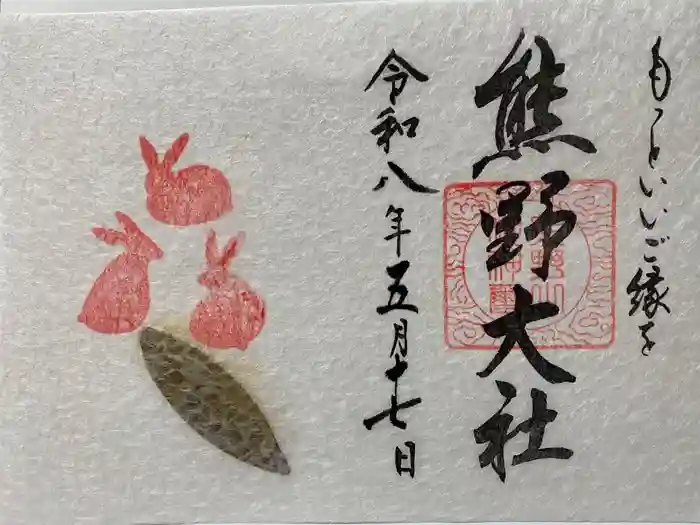 もっといいご縁を
熊野大社
令和八年五月十七日